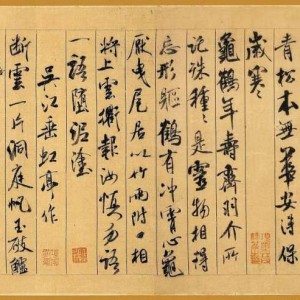 青松本無華安得保
歲寒
龜鶴年壽齊羽介所
託殊種〻是靈物相得
忘形軀鶴有沖霄心龜
厭曳尾居以竹兩附口相
將上雲衢報汝慎勿語
一語墮泥塗
吳江垂虹亭作
斷雲一片洞庭帆玉破鱸